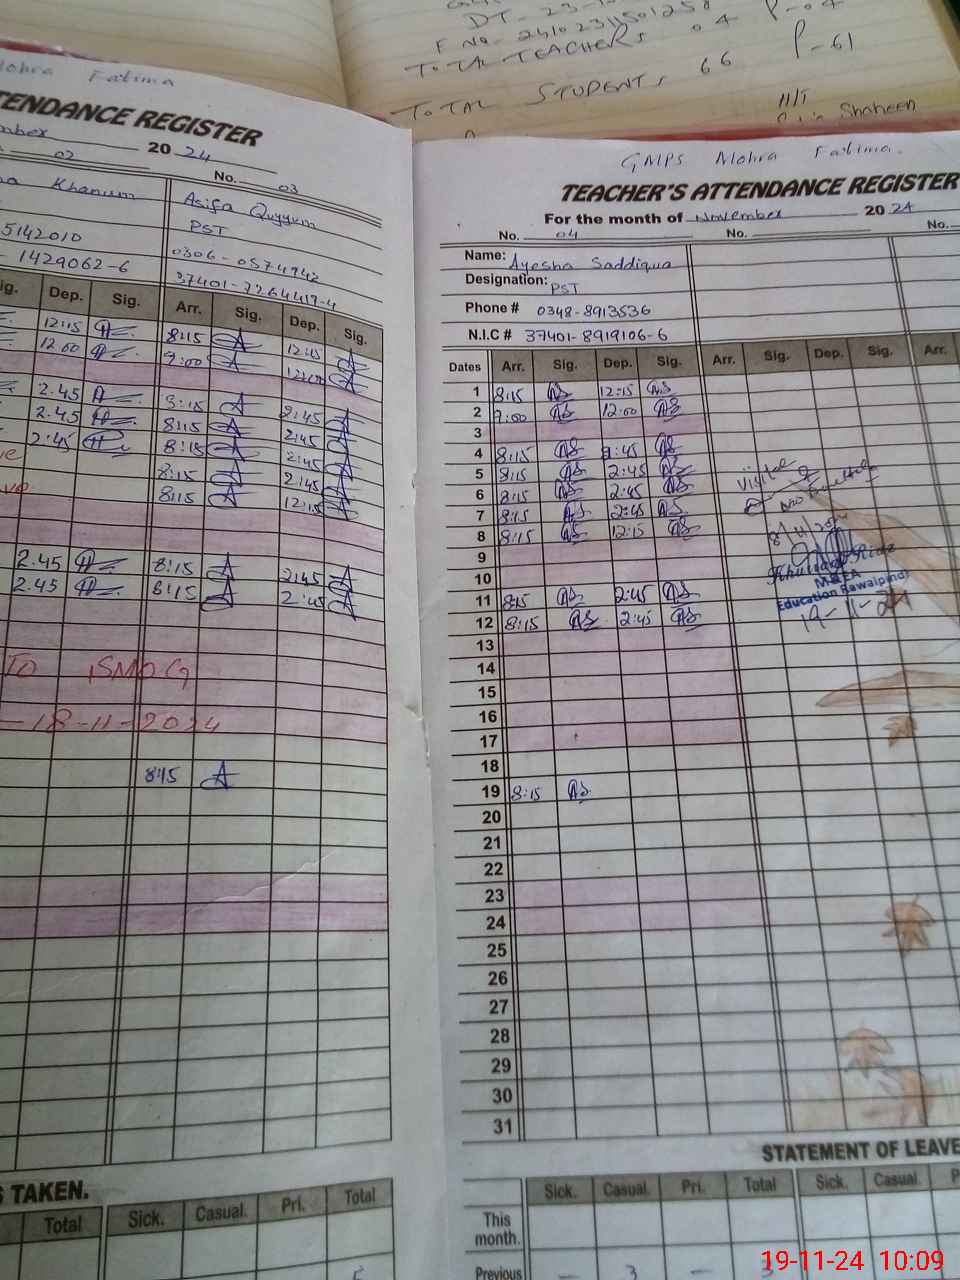 DT - 23-1
F No - 24102311501258
TOTAL TEACHERS 04 P-04
TOTAL STUDENTS 66 P-61
Shaheen
Mohra Fatima
TENDANCE REGISTER
mber 2024
02 No. 03
Khanum
Asifa Quyyum
PST
5142010
0306-0574942
1429062-6
37401-7264419-4
ig. Dep. Sig. Arr. Sig. Dep. Sig.
12:15 8:15 12:15
12.00 9:00 12:00
2.45 8:15 2:45
2.45 8:15 2:45
2:45 8:15 2:45
8:15 2:45
8:15 12:15
2.45 8:15 2:45
2.45 8:15 2:45
TO SMOG
-18-11-2024
8:15
TAKEN.
Total Sick. Casual. Pri. Total
GMPS Mohra Fatima.
TEACHER'S ATTENDANCE REGISTER
For the month of November 2024
No. 04 No. No.
Name: Ayesha Saddiqua
Designation: PST
Phone # 0348-8913536
N.I.C # 37401-8919106-6
Dates Arr. Sig. Dep. Sig. Arr. Sig. Dep. Sig. Arr.
1 8:15 AS 12:15 AS
2 9:00 AS 12:00 AS
3
4 8:15 AS 2:45 AS
5 8:15 AS 2:45 AS
6 8:15 AS 2:45 AS
7 8:15 AS 2:45 AS
8 8:15 AS 12:15 AS
9
10
11 8:15 AS 2:45 AS
12 8:15 AS 2:45 AS
13
14
15
16
17
18
19 8:15 AS
20
21
22
23
24
25
26
27
28
29
30
31
Visited
Khurram Riaz
MEA
Education Rawalpindi
19-11-24
STATEMENT OF LEAVE
Sick. Casual. Pri. Total Sick. Casual. P
This month.
Previous - 3 -
19-11-24 10:09